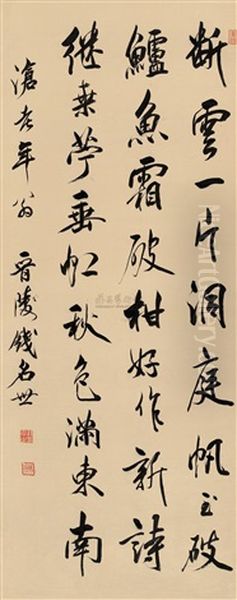 斷雲一片洞庭帆玉破
鱸魚霜破柑好作新詩
繼桑苧垂虹秋色滿東南
滄老年翁 晉陵錢名世